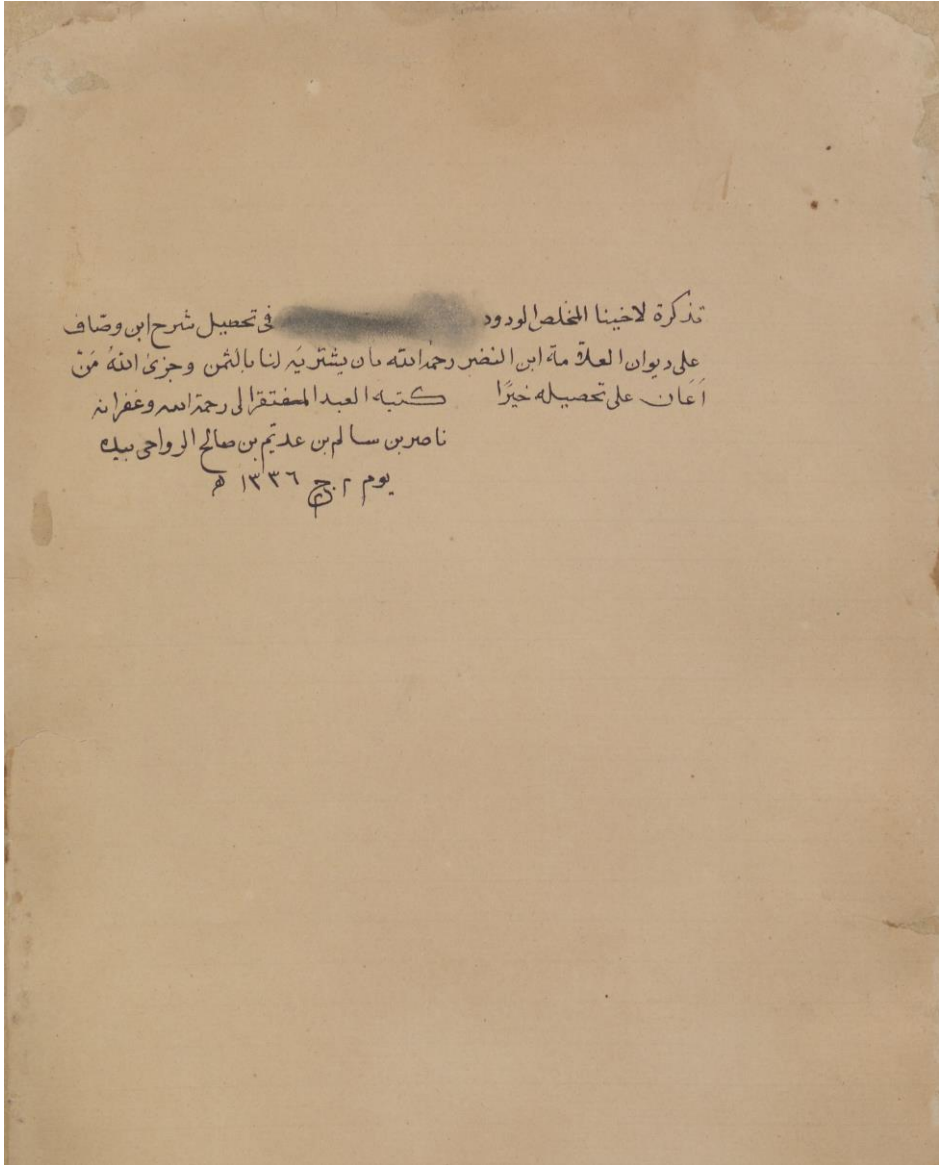 تذكرة لاخينا المخلص الودود في تحصيل شرح ابن وصّاف
على ديوان العلامة ابن النضر رحمه الله بان يشتريَه لنا بالثمن وجزى اللهُ مَنْ
اَعَان على تحصيله خيرًا كتبه العبد المفتقر الى رحمة الله وغفرانه
ناصر بن سالم بن عديّم بن صالح الرواحي بيده
يوم ٢ ج ١٣٣٦ ه